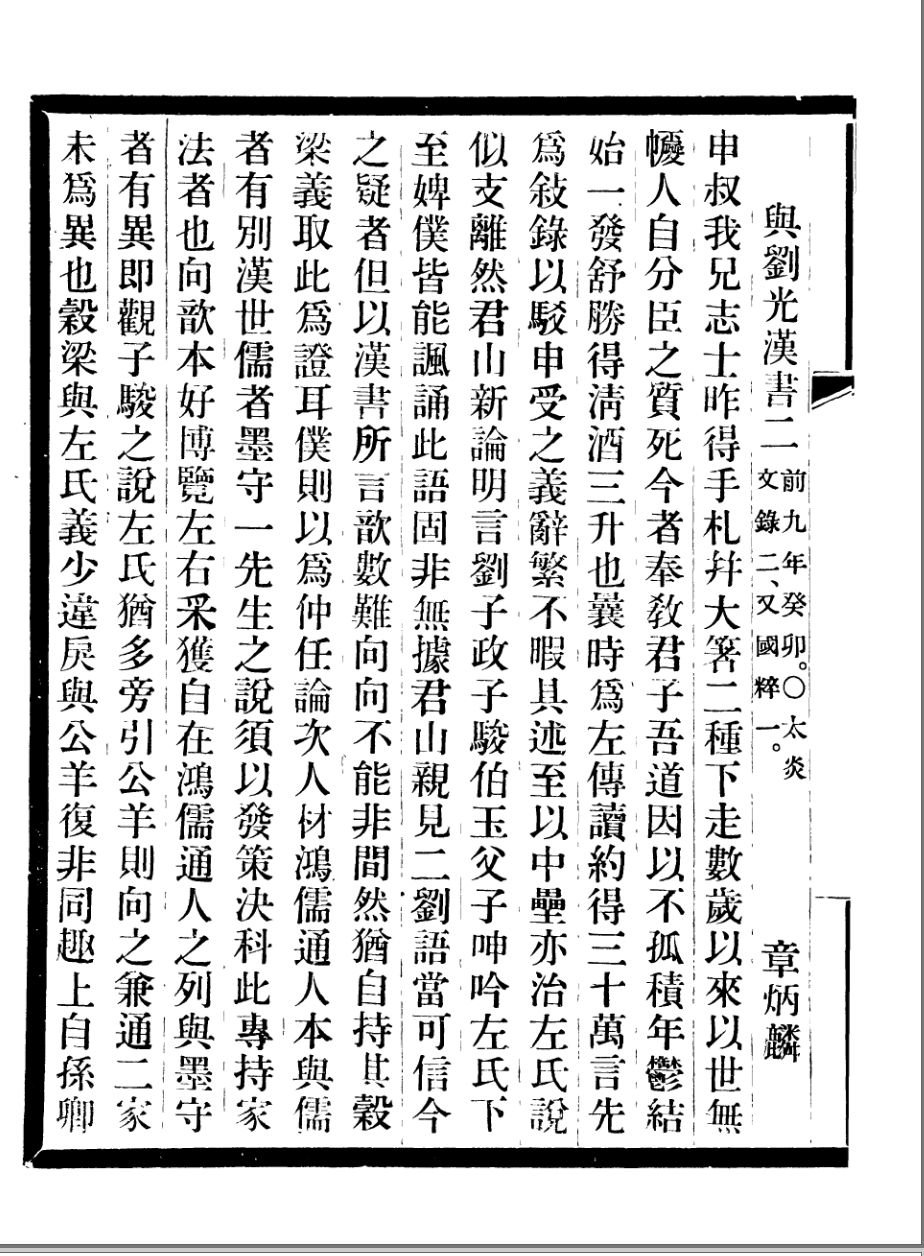 與劉光漢書二 前九年癸卯。〇太炎文錄二、又國粹一。 章炳麟
申叔我兄志士昨得手札幷大箸二種下走數歲以來以世無
巙人自分臣之質死今者奉敎君子吾道因以不孤積年鬱結
始一發舒勝得淸酒三升也曩時爲左傳讀約得三十萬言先
爲敍錄以駁申受之義辭繁不暇具述至以中壘亦治左氏說
似支離然君山新論明言劉子政子駿伯玉父子呻吟左氏下
至婢僕皆能諷誦此語固非無據君山親見二劉語當可信今
之疑者但以漢書所言歆數難向向不能非間然猶自持其穀
梁義取此爲證耳僕則以爲仲任論次人材鴻儒通人本與儒
者有別漢世儒者墨守一先生之說須以發策決科此專持家
法者也向歆本好博覽左右采獲自在鴻儒通人之列與墨守
者有異即觀子駿之說左氏猶多旁引公羊則向之兼通二家
未爲異也穀梁與左氏義少違戾與公羊復非同趣上自孫卿